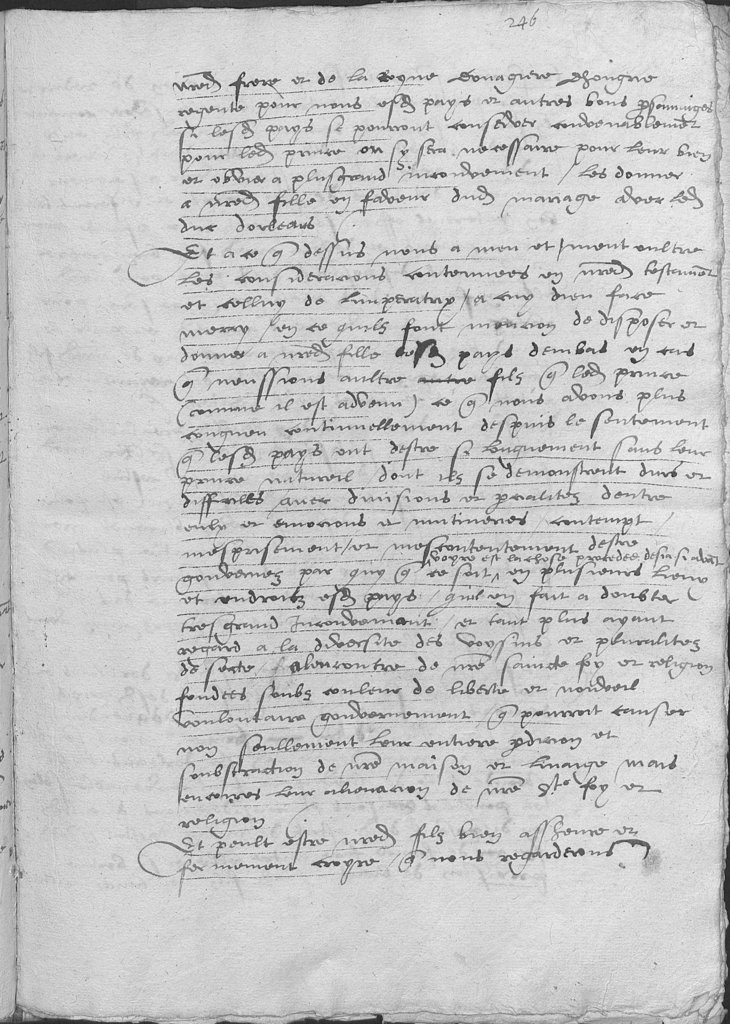 246
nred frere et de la royne douagiere dhongrie
regente pour nous esd pays et autres bons psonnaiges
si lesd pays se pourront conserver convenablement
pour led prince ou sy sera necessaire pour leur bien
et obvier a plusgrand inconvenient / les donner
a nred fille en faveur dud mariage avec led
duc dorleans /
Et a ce q dessus nous a meu et / meut oultre
les consideracions contenues en nred testament
et celluy de limperatrix / a cuy dieu face
mercy / en ce quilz font mencion de disposer et
donner a nred fille lesd pays dembas en cas
q neussions aultre filz q led prince
(comme il est advenu) ce q nous avons plus
congneu continuellement despuis le sentement
q lesd pays ont destre si longuement sans leur
prince naturel dont ilz se demonstrent durs et
difficiles avec divisions et pcialitez dentre
eulx et emocions et mutineries / contempt /
mesprisement / et mescontentement destre
voyre est la chose procedee desia si avant
gouvernez par quy q ce soit, en plusieurs lieux
et endroitz esd pays / quil en fait a doubter
tresgrand inconvenient / et tant plus ayant
regard a la diversite des voysins et pluralitez
de secte / alencontre de nre saincte foy et religion
fondees soubz couleur de liberte et nouveil
voulontaire gouvernement q pourroit causer
non seullement leur entiere pdicion et
substraction de nre maison et linaige mais
encoires leur alienacion de nre ste foy et
religion /
Et peult estre nred filz bien assheure et
fermement croyre / q nous regarderons